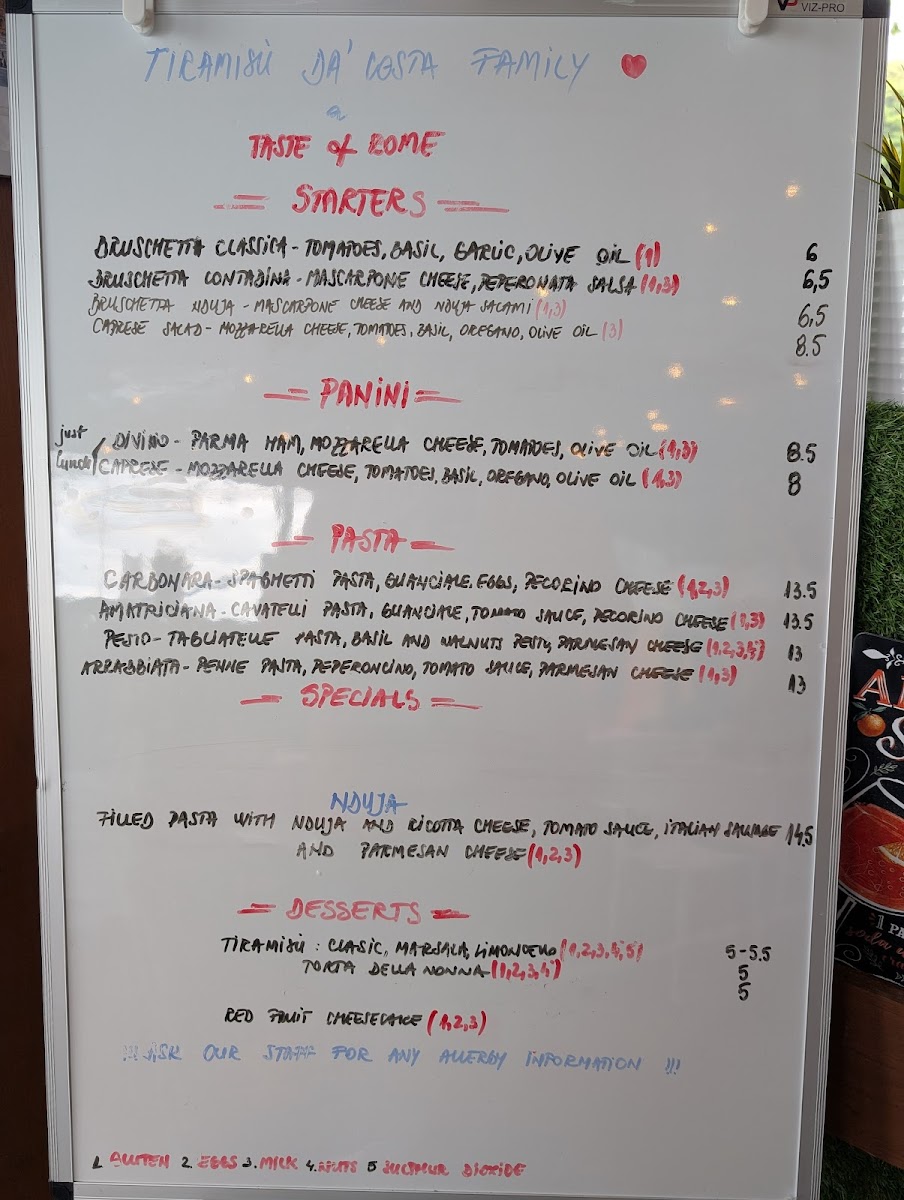 VIZ-PRO
TIRAMISÙ DA' COSTA FAMILY
a
TASTE of ROME
STARTERS
BRUSCHETTA CLASSICA - TOMATOES, BASIL, GARLIC, OLIVE OIL (1) 6
BRUSCHETTA CONTADINA - MASCARPONE CHEESE, PEPERONATA SALSA (1,3) 6,5
BRUSCHETTA NDUJA - MASCARPONE CHEESE AND NDUJA SALAMI (1,3) 6,5
CAPRESE SALAD - MOZZARELLA CHEESE, TOMATOES, BASIL, OREGANO, OLIVE OIL (3) 8.5
PANINI
just lunch
DIVINO - PARMA HAM, MOZZARELLA CHEESE, TOMATOES, OLIVE OIL (1,3) 8.5
CAPRESE - MOZZARELLA CHEESE, TOMATOES, BASIL, OREGANO, OLIVE OIL (1,3) 8
PASTA
CARBONARA - SPAGHETTI PASTA, GUANCIALE, EGGS, PECORINO CHEESE (1,2,3) 13.5
AMATRICIANA - CAVATELLI PASTA, GUANCIALE, TOMATO SAUCE, PECORINO CHEESE (1,3) 13.5
PESTO - TAGLIATELLE PASTA, BASIL AND WALNUTS PESTO, PARMESAN CHEESE (1,2,3,4) 13
ARRABBIATA - PENNE PASTA, PEPERONCINO, TOMATO SAUCE, PARMESAN CHEESE (1,3) 13
SPECIALS
NDUJA
FILLED PASTA WITH NDUJA AND RICOTTA CHEESE, TOMATO SAUCE, ITALIAN SAUSAGE 14.5
AND PARMESAN CHEESE (1,2,3)
DESSERTS
TIRAMISÙ : CLASIC, MARSALA, LIMONCELLO (1,2,3,4,5) 5-5.5
TORTA DELLA NONNA (1,2,3,4) 5
5
RED FRUIT CHEESECAKE (1,2,3)
!!! ASK OUR STAFF FOR ANY ALLERGY INFORMATION !!!
1 GLUTEN 2 EGGS 3. MILK 4. NUTS 5 SULPHUR DIOXIDE